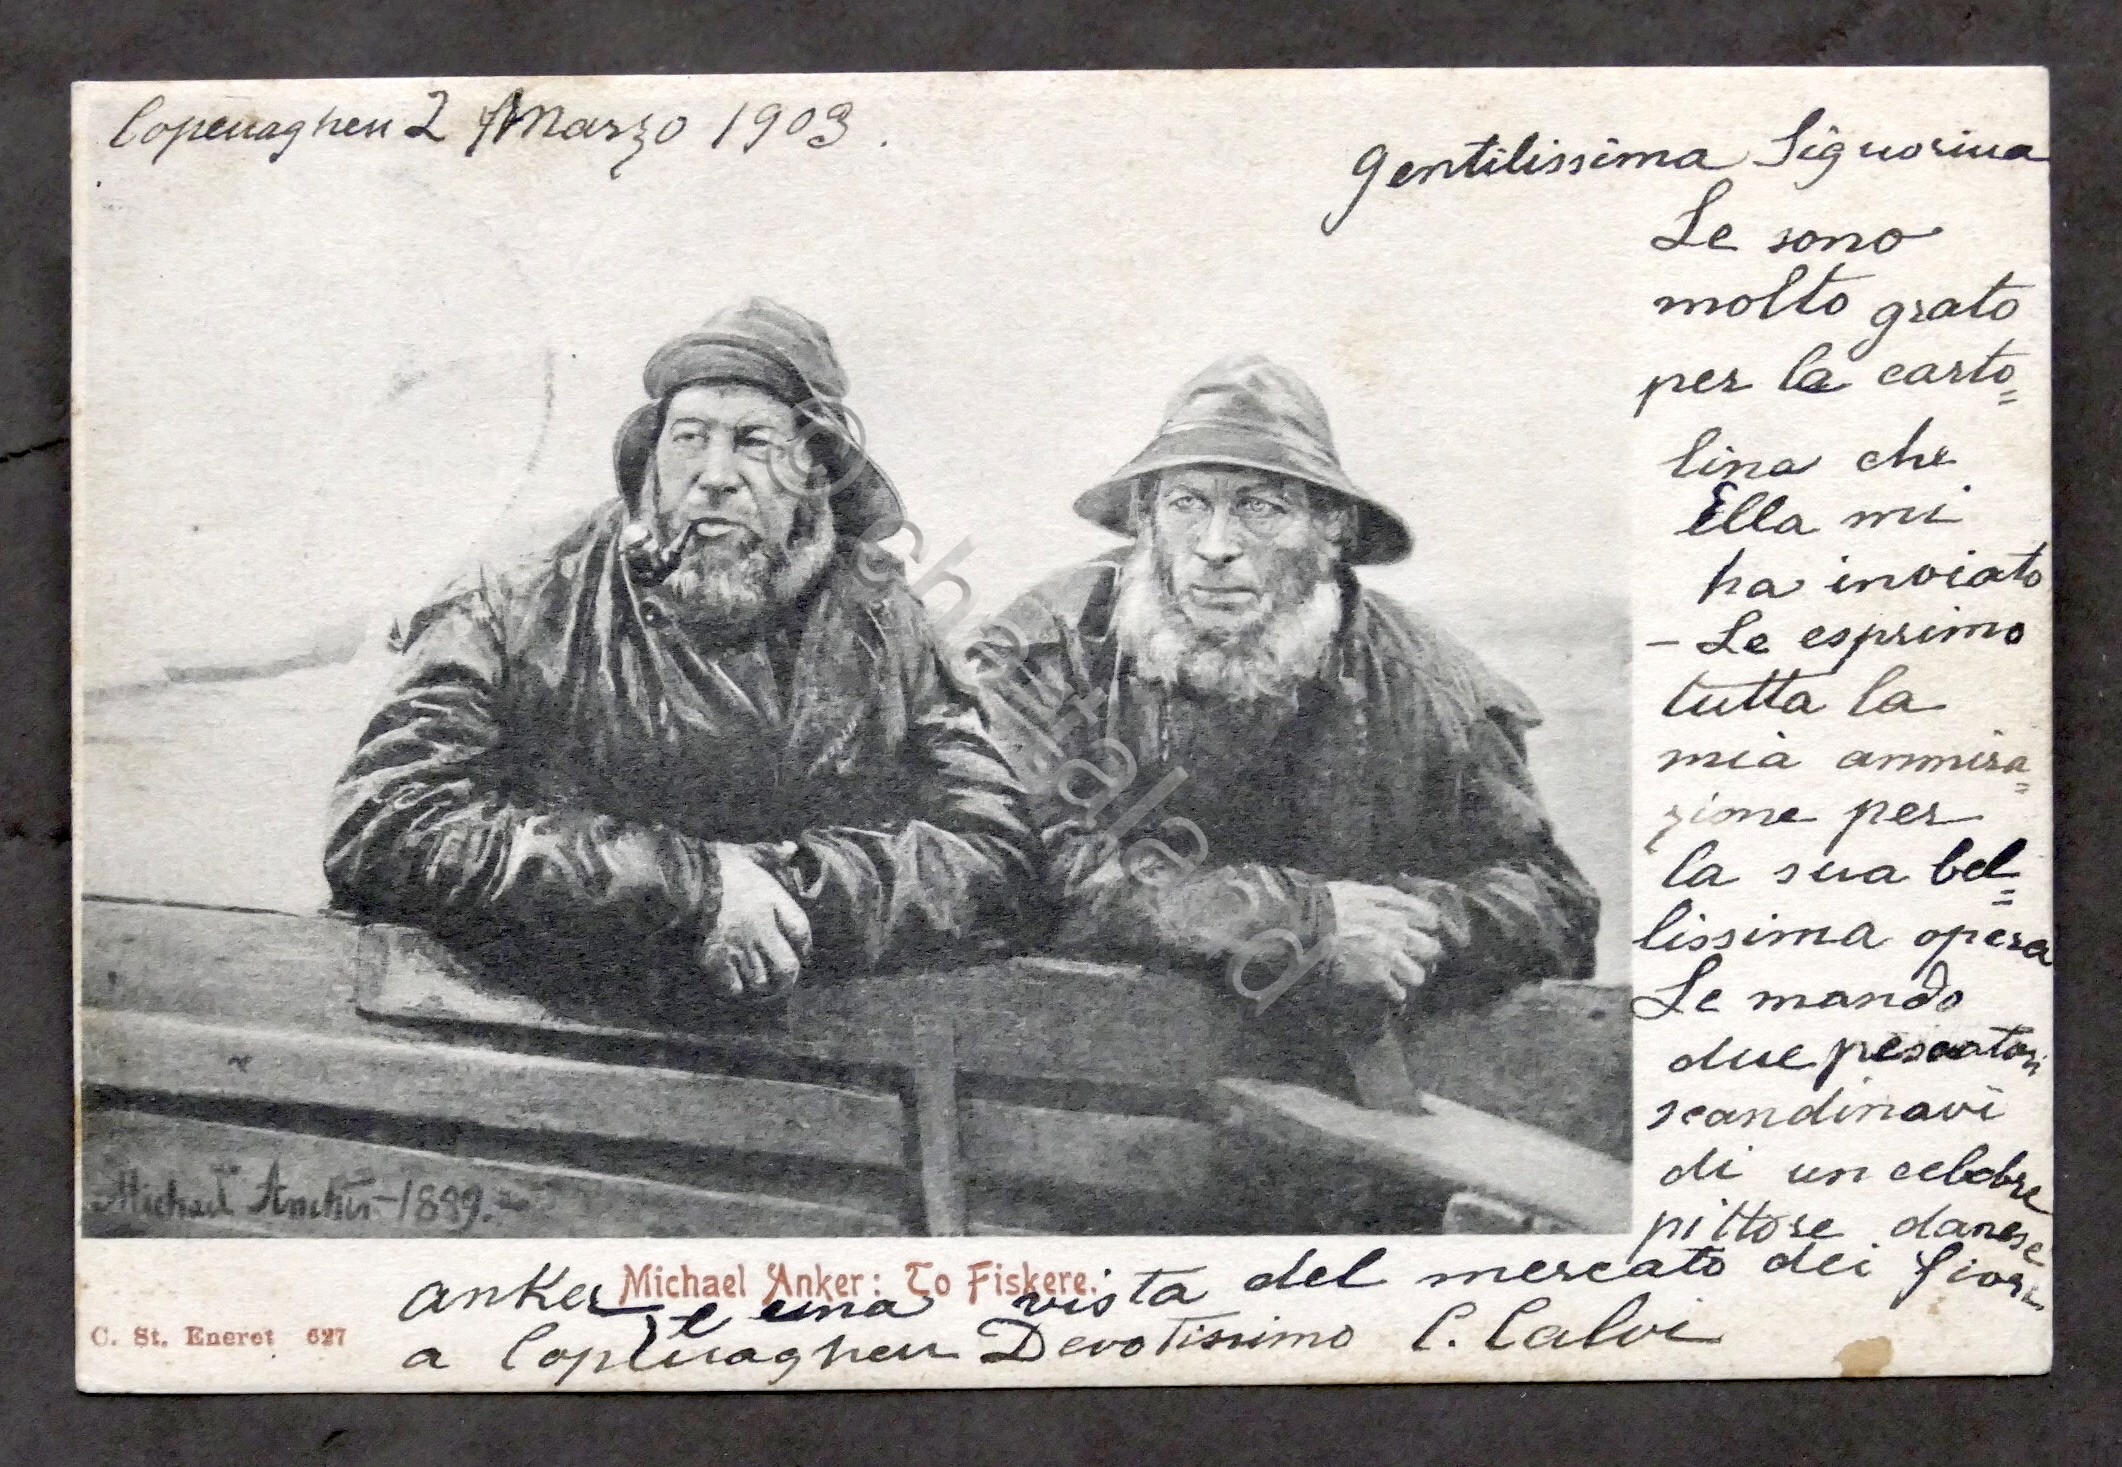 Copenaghen 2 Marzo 1903.
Gentilissima Signorina
Le sono
molto grato
per la carto=
lina che
Ella mi
ha inviato
- Le esprimo
tutta la
mia ammira=
zione per
la sua bel=
lissima opera
Le mando
due pescatori
scandinavi
di un celebre
pittore danese
Anker e una vista del mercato dei fiori
a Copenaghen Devotissimo C. Calvi
Michael Ancher - 1889.
Michael Anker: To Fiskere.
C. St. Eneret 627
© chartaland